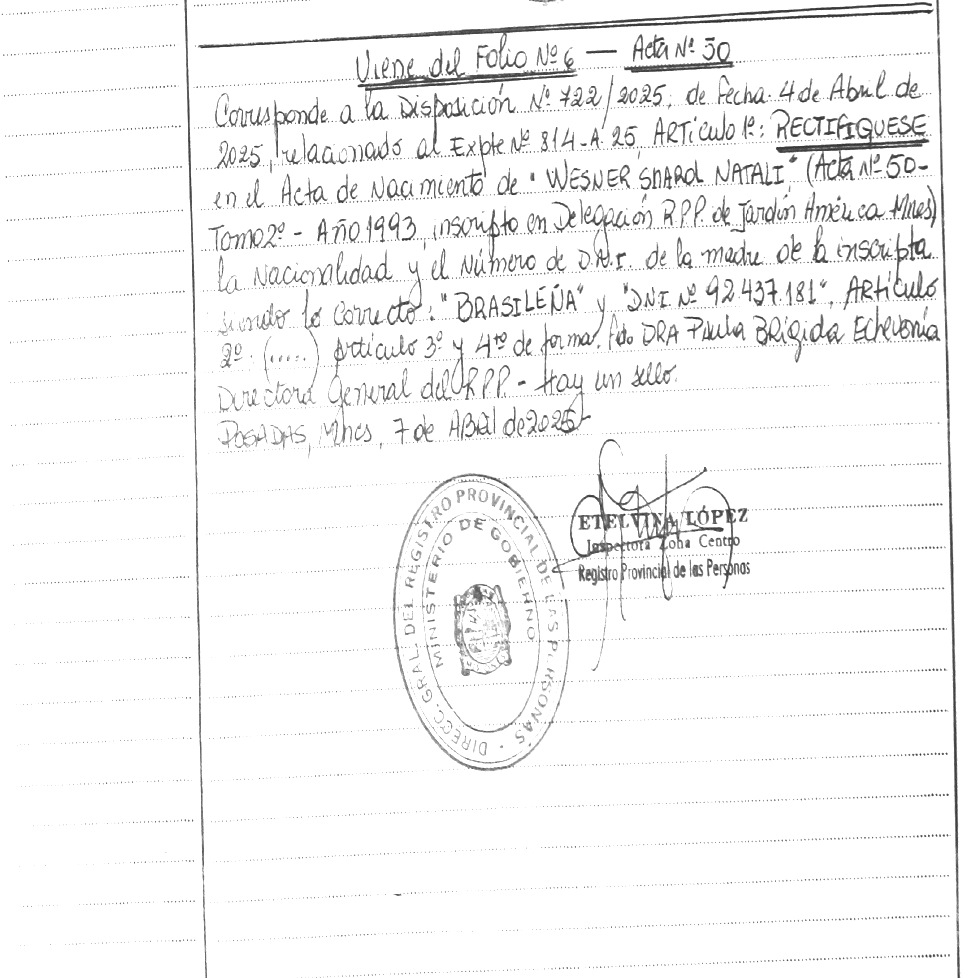 Viene del Folio Nº 6 — Acta Nº 50
Corresponde a la Disposición Nº 722/2025, de fecha 4 de Abril de
2025, relacionado al Expte Nº 814-A-25, ARTículo 1º: RECTIFIQUESE
en el Acta de Nacimiento de "WESNER SHAROL NATALI" (Acta Nº 50-
Tomo 2º - Año 1993, inscripto en Delegación R.P.P. de Jardín América Mnes)
la Nacionalidad y el Número de D.N.I. de la madre de la inscripta
siendo lo correcto: "BRASILEÑA" y "DNI Nº 92.437.181". ARTículo
2º. (.....) Artículo 3º y 4to de forma. fdo DRA Paula BRigida Echeverría
Directora General del RPP - Hay un sello.
POSADAS, Mnes, 7 de ABRil de 2025
ETELVINA LÓPEZ
Inspectora Zona Centro
Registro Provincial de las Personas
DIRECC. GRAL. DEL REGISTRO PROVINCIAL DE LAS PERSONAS
MINISTERIO DE GOBIERNO